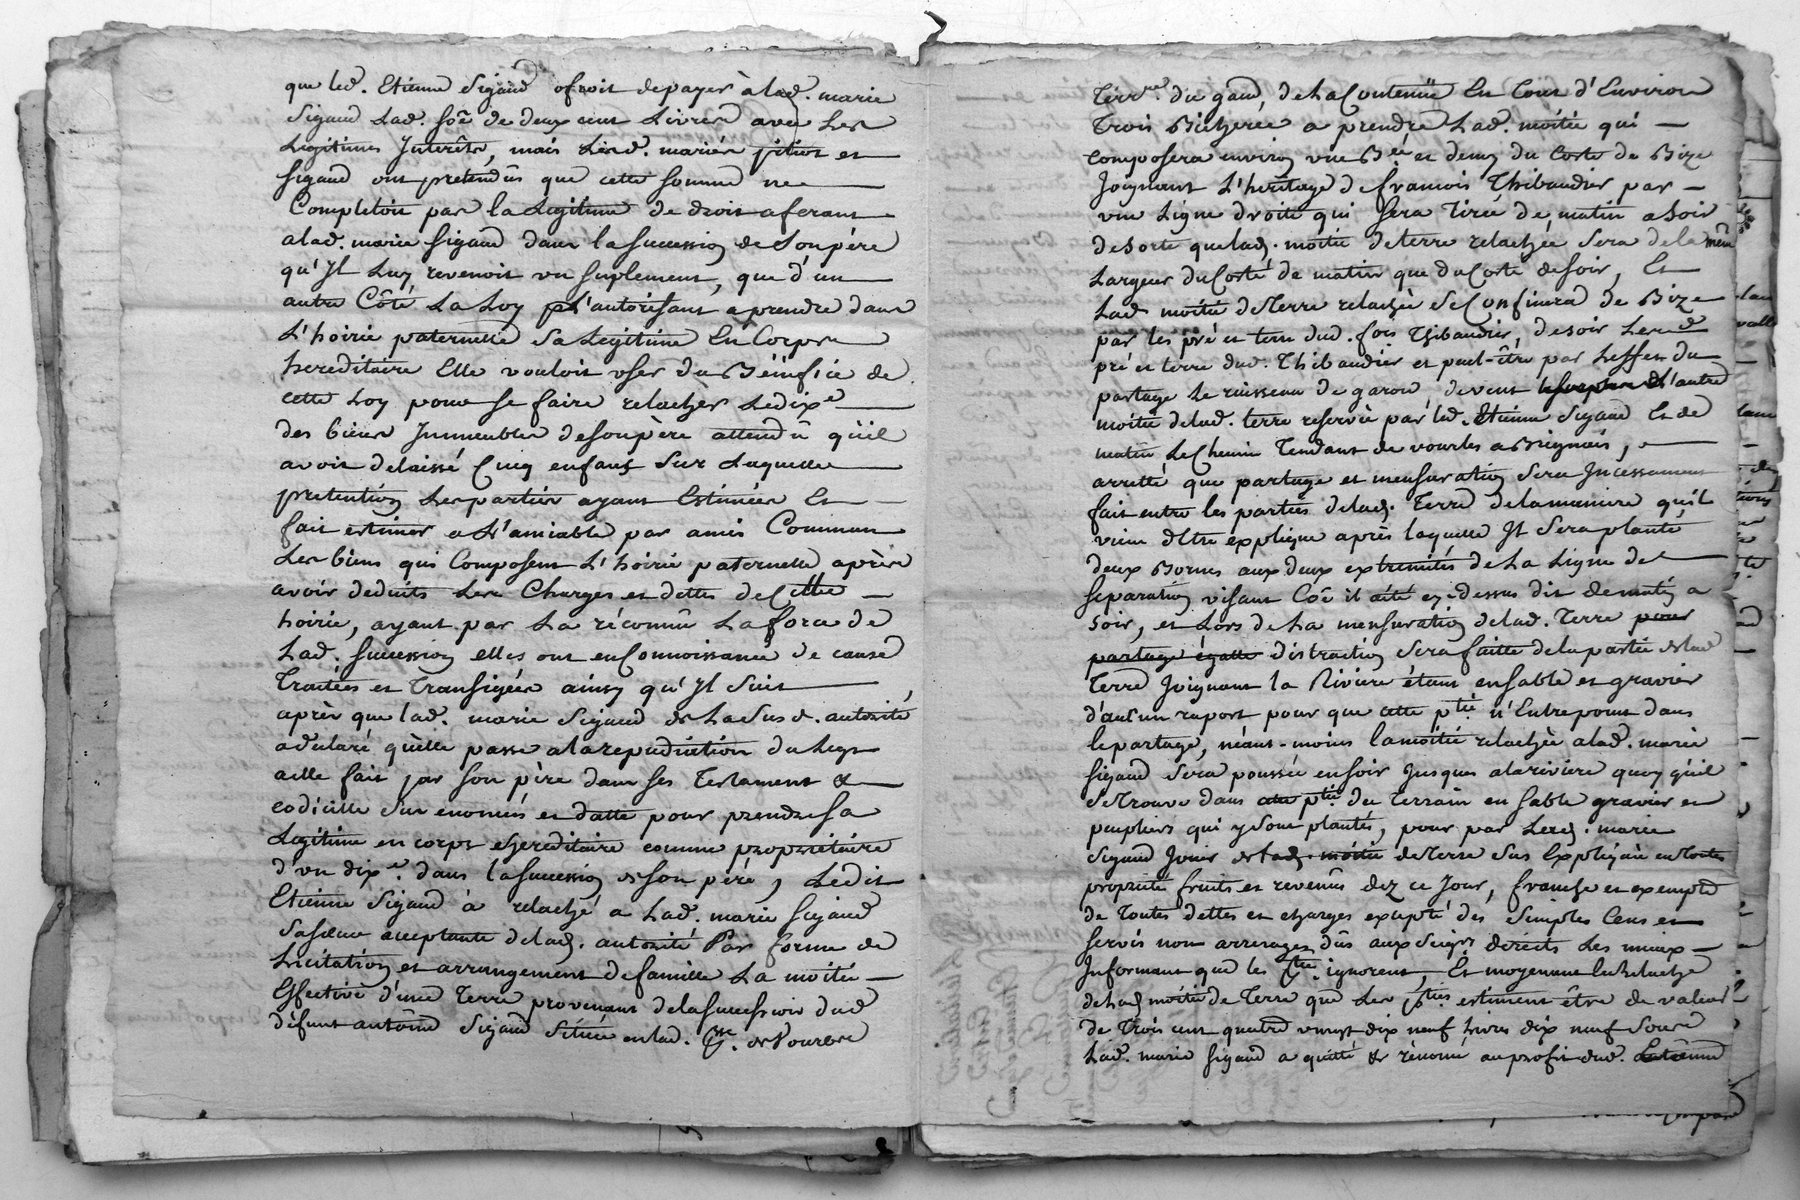 que led. Etienne Sigaud ofroit de payer à lad. marie
Sigaud Lad. soe de deux cent Livres avec Les
Légitimes Interêts, mais Lesd. mariés pitiot et
Sigaud ont prétendus que cette somme ne
Completoit pas la Legitime de droit aferant
a lad. marie Sigaud dans la succession de Son père
qu'Il Luy revenoit un suplement, que d'un
autre Côté La Loy L'autorisant a prendre dans
L'hoirie paternelle Sa Legitime En Corps
hereditaire Elle vouloit user du Bénéfice de
cette Loy pour se faire relacher Le dixe
des biens Immeubles de son père attendû qu'il
avoit delaissé Cinq enfans Sur Laquelle
pretention Les parties ayant Estimées Et
fait estimer a L'amiable par amis Communs
Les biens qui Composent L'hoirie paternelle après
avoir deduits Les Charges et dettes de Cette
hoirie, ayant par La réconnû La force de
Lad. Succession elles ont en Connoissance de cause
Traitées et Transigées ainsy qu'Il Suit
après que lad. marie Sigaud de La Susd. autorité
a declaré qu'elle passe a la repudiation du Legs
a elle fait par son père dans ses Testament &
codicille sus enoncés et datte pour prendre sa
Legitime en corps hereditaire comme propriétaire
d'un dixe. dans la Succession de son père, Ledit
Etienne Sigaud à relaché a Lad. marie Sigaud
Sa sœur acceptante de lad. autorité Par forme de
Licitation et arrangement de famille La moitié
Effective d'une Terre provenant de la Succession dud
défunt antoine Sigaud Située en lad. de Vourles
Terre. du gand, de La Contenue En Tout d'Environ
Trois Bicherée a prendre Lad. moitié qui
composera environ une Bée et demy du Costé de Bize
Joignant L'heritage de francois Thibaudier par
une Ligne droite qui sera Tirée de matin a Soir
de sorte que lad. moitié de terre relachée Sera de la même
Largeur du Costé de matin que du Costé de soir, Et
Lad moitié de Terre relachée Se Confinera de Bize
par les pré et terre dud. fois Thibaudier, de soir Lesd
pré et terre dud. Thibaudier et peut-être par Leffet du
partage le ruisseau de garon, de vent l'autre
moitié de lad. terre reservée par led. Etienne Sigaud Et de
matin Le Chemin Tendant de vourles a Brignais,
arretté que partage et mensuration Sera Incessament
fait entre les parties de lad. Terre de la maniere qu'il
vient d'Etre expliqué après laquelle Il Sera planté
deux Bornes aux deux extremités de La Ligne de
Separation visant Coe il a été cy-dessus dit de matin a
Soir, et Lors de La mensuration de lad. Terre pour
partage égalle distraction Sera faitte de la partie de lad
Terre Joignant la Riviere étant en Sable et gravier
d'aucun raport pour que cette ptie n'Entre point dans
le partage, néant-moins la moitié relachée a lad. marie
Sigaud Sera poussée en soir Jusques a la riviere quoy qu'il
Se Trouve dans cette ptie du Terrain en Sable gravier et
peupliers qui y Sont plantés, pour par Lad. marie
Sigaud Jouir de lad. moitié de Terre Sus Expliquée en Toutes
propriété fruits et revenûs dez ce Jour, franche et exempte
de Toutes dettes et charges excepté des Simples Cens et
servis non arrerages dûs aux Seigrs directs Les mieux
Informant que les Pties. ignorent, Et moyennant le Relache
de Lad moitié de Terre que Les pties. estiment être de valeur
de Trois cent quatre vingt dix neuf Livres dix neuf Sous
Lad. marie Sigaud a quitté & rénoncé au profit dud. Etienne